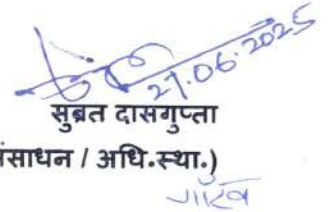 27.06.2025
सुब्रत दासगुप्ता
साधन / अधि.स्था.)